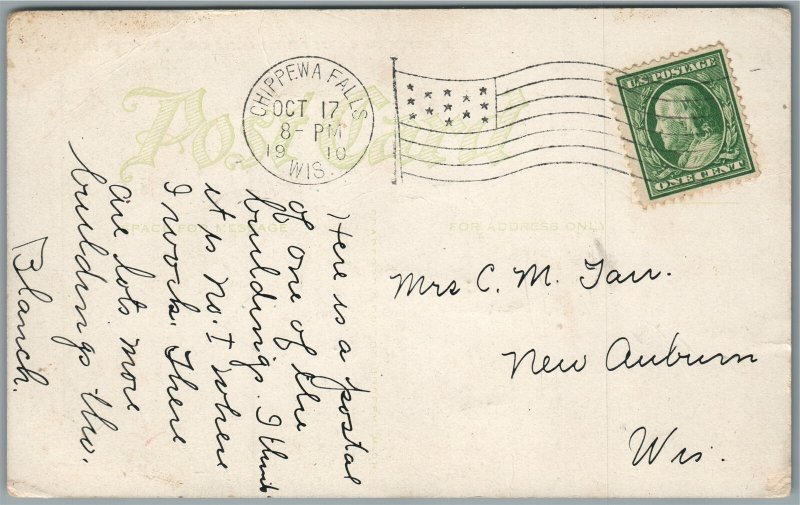 Post Card
CHIPPEWA FALLS
OCT 17
8-PM
1910
WIS.
U.S. POSTAGE
ONE CENT
SPACE FOR MESSAGE
FOR ADDRESS ONLY
Here is a postal
of one of the
buildings. I think
it is No. 1 where
I work. There
are lots more
buildings tho.
Blanch.
Mrs C. M. Tarr.
New Auburn
Wis.